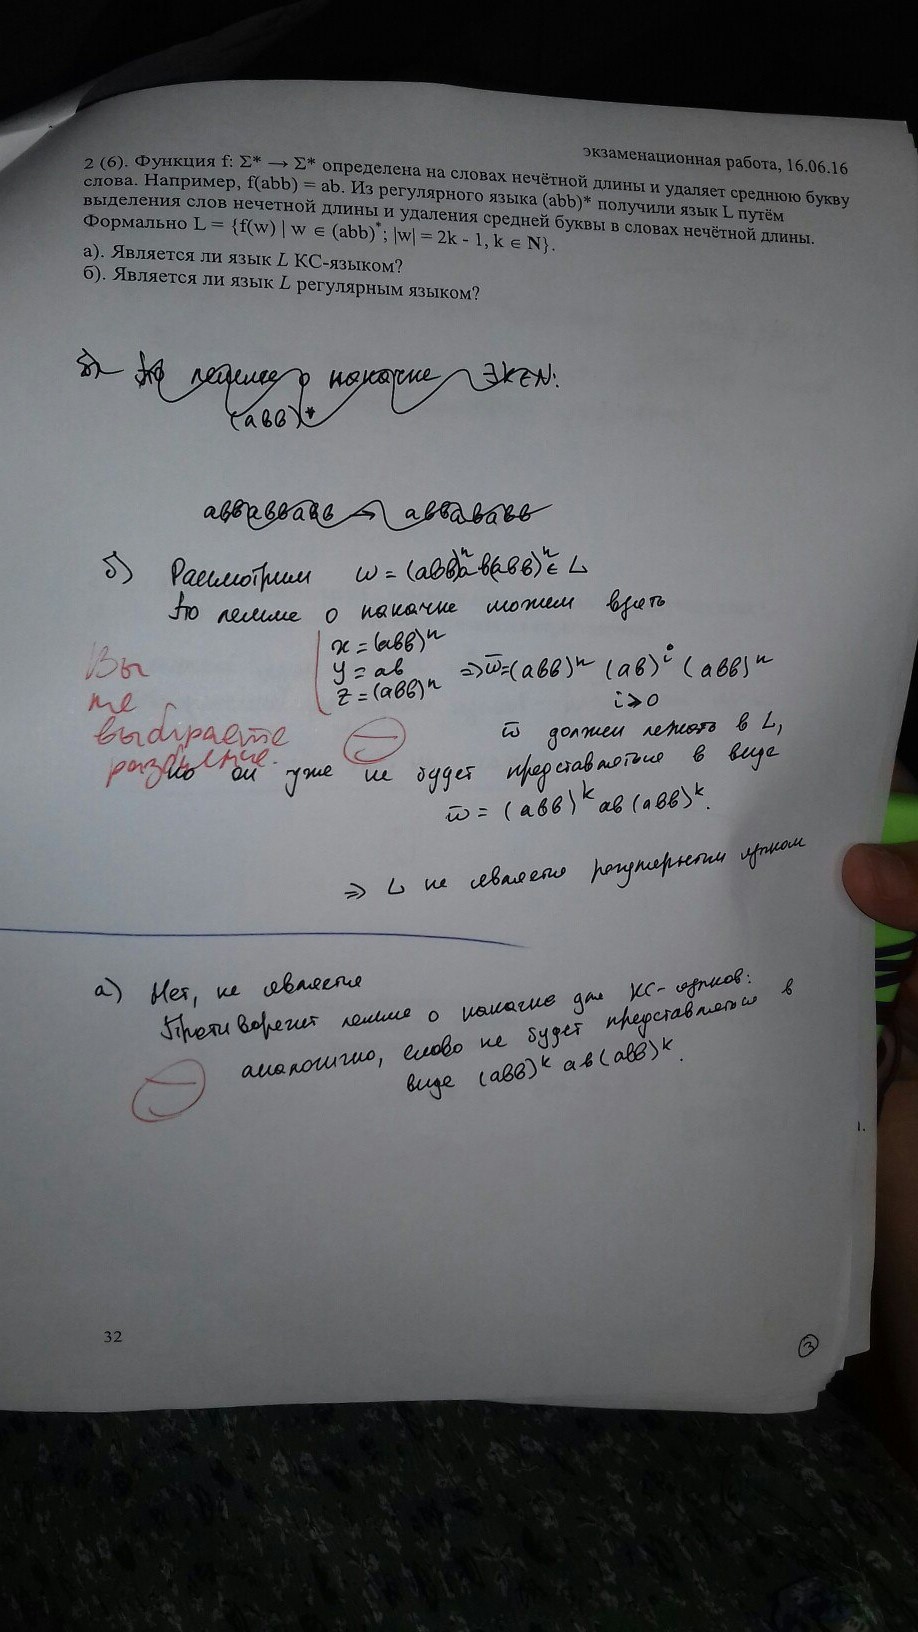 экзаменационная работа, 16.06.16
2 (6). Функция f: Σ* → Σ* определена на словах нечётной длины и удаляет среднюю букву
слова. Например, f(abb) = ab. Из регулярного языка (abb)* получили язык L путём
выделения слов нечетной длины и удаления средней буквы в словах нечётной длины.
Формально L = {f(w) | w ∈ (abb)*; |w| = 2k - 1, k ∈ N}.
а). Является ли язык L КС-языком?
б). Является ли язык L регулярным языком?
б) По лемме о накачке ∃k∈N:
(abb)*
abbabbabb → abbababb
б) Рассмотрим w = (abb)ⁿab(abb)ⁿ ∈ L
По лемме о накачке можем взять
x = (abb)ⁿ
y = ab ⇒ w̄=(abb)ⁿ (ab)ⁱ (abb)ⁿ
z = (abb)ⁿ i⩾0
Вы
не
выбираете
разбиение.
w̄ должен лежать в L,
но он уже не будет представляться в виде
w̄ = (abb)ᵏ ab (abb)ᵏ.
⇒ L не является регулярным языком
а) Нет, не является
Противоречит лемме о накачке для КС-языков:
аналогично, слово не будет представляться в
виде (abb)ᵏ ab (abb)ᵏ.
1.
32
3